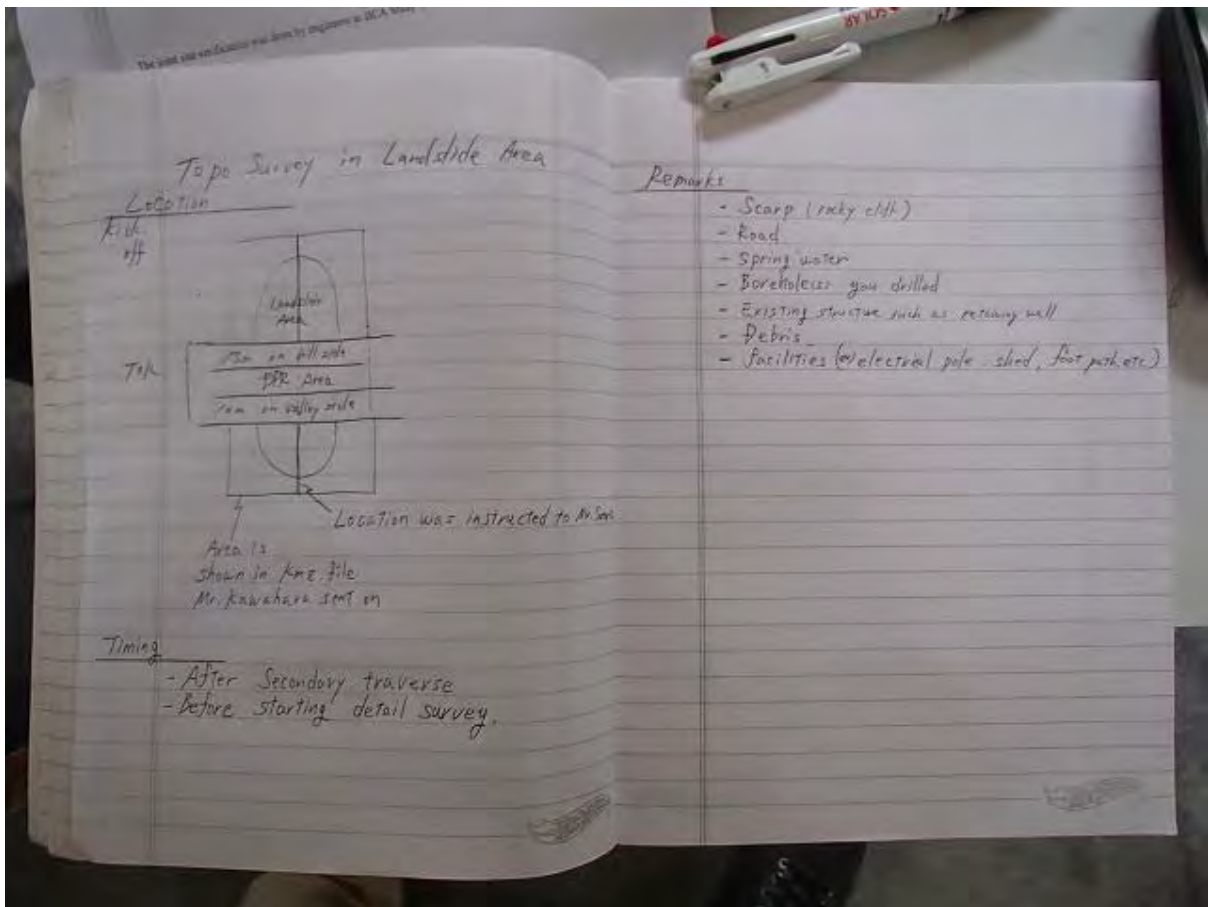 The joint site verification was done by engineers in JICA Study
SOLAR
Topo Survey in Landslide Area
Location
Kick
off
Landslide
Area
on hill side
Area
on valley side
Location was instructed to Mr.
Area is
shown in kmz file
Mr. Kawahara sent on
Timing
- After Secondary traverse
- Before starting detail survey.
Remarks
- Scarp (rocky cliff)
- Road
- Spring water
- Boreholes you drilled
- Existing structure such as retaining wall
- Debris
- Facilities (electrical pole, shed, foot path, etc)